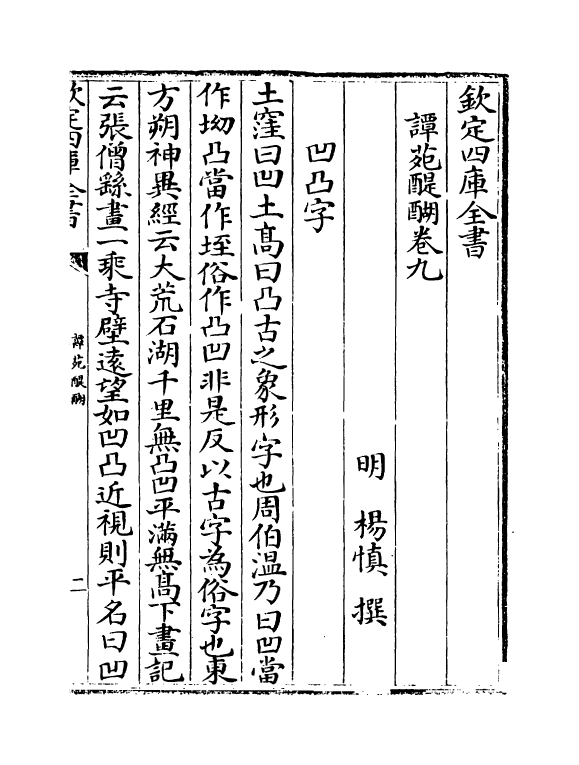 欽定四庫全書
譚苑醍醐卷九
明 楊慎 撰
凹凸字
土窪曰凹土髙曰凸古之象形字也周伯温乃曰凹當
作坳凸當作垤俗作凸凹非是反以古字為俗字也東
方朔神異經云大荒石湖千里無凸凹平滿無髙下畫記
云張僧繇畫一乘寺壁遠望如凹凸近視則平名曰凹
欽定四庫全書
譚苑醍醐
二